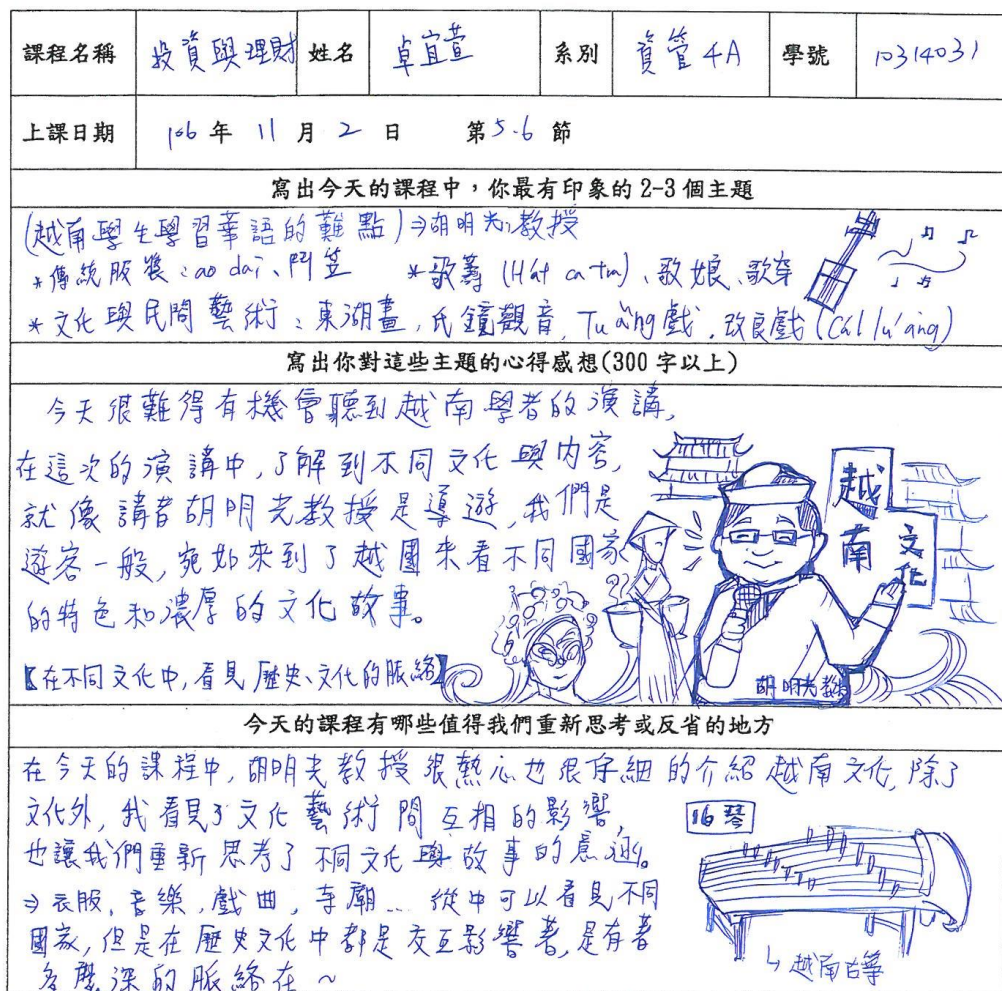 課程名稱 投資與理財 姓名 卓宜萱 系別 資管 4A 學號 10314031
上課日期 106 年 11 月 2 日 第 5.6 節
寫出今天的課程中，你最有印象的 2-3 個主題
(越南學生學習華語的難點)⇒胡明光教授
*傳統服裝：ao dai、鬥笠 *歌籌 (Hát ca trù)、歌娘、歌
*文化與民間藝術：東湖畫，氏鏡觀音，Tuồng戲，改良戲(Cải lương)
寫出你對這些主題的心得感想(300 字以上)
今天很難得有機會聽到越南學者的演講，
在這次的演講中，了解到不同文化與內容，
就像講者胡明光教授是導遊，我們是
遊客一般，宛如來到了越國來看不同國家
的特色和濃厚的文化故事。
【在不同文化中，看見歷史、文化的脈絡】
越南
文化
胡明光教授
今天的課程有哪些值得我們重新思考或反省的地方
在今天的課程中，胡明光教授很熱心也很仔細的介紹越南文化，除了
文化外，我看見了文化藝術間互相的影響，
也讓我們重新思考了不同文化與故事的意涵。
⇒衣服、音樂，戲曲，寺廟... 從中可以看見不同
國家，但是在歷史文化中都是交互影響著，是有著
多麼深的脈絡在～
16琴
↳越南古箏